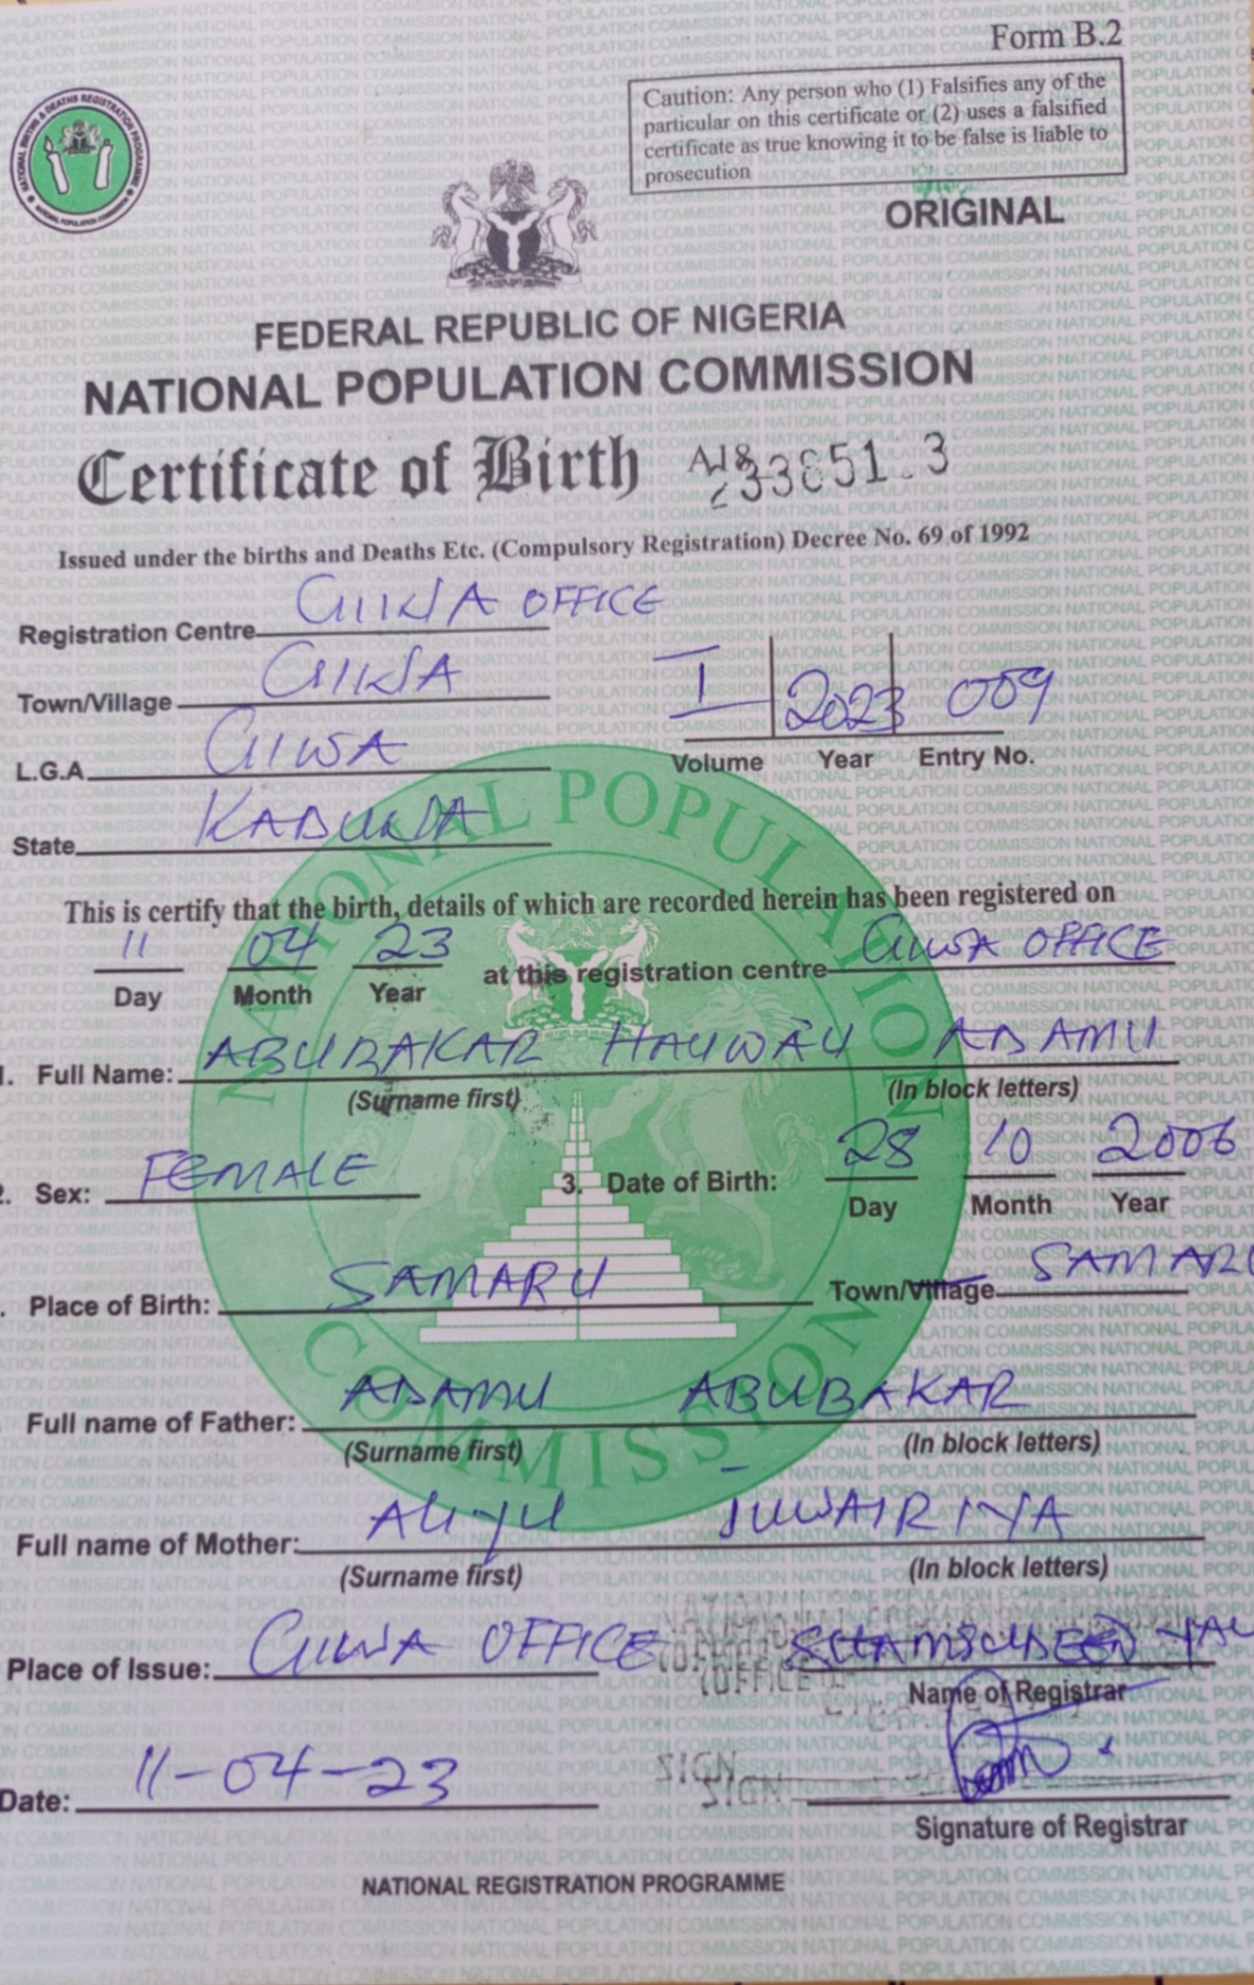 Form B.2
Caution: Any person who (1) Falsifies any of the
particular on this certificate or (2) uses a falsified
certificate as true knowing it to be false is liable to
prosecution
NATIONAL BIRTHS & DEATHS REGISTRATION PROGRAMME
NATIONAL POPULATION COMMISSION
ORIGINAL
FEDERAL REPUBLIC OF NIGERIA
NATIONAL POPULATION COMMISSION
Certificate of Birth
Issued under the births and Deaths Etc. (Compulsory Registration) Decree No. 69 of 1992
Registration Centre GIWA OFFICE
Town/Village GIWA
I 2023 009
Volume Year Entry No.
L.G.A GIWA
State KADUNA
This is certify that the birth, details of which are recorded herein has been registered on
11 04 23 at this registration centre GIWA OFFICE
Day Month Year
1. Full Name: ABUBAKAR HAUWA'U ADAMU
(Surname first) (In block letters)
2. Sex: FEMALE 3. Date of Birth: 28 10 2006
Day Month Year
. Place of Birth: SAMARU Town/Village SAMARU
Full name of Father: ADAMU ABUBAKAR
(Surname first) (In block letters)
Full name of Mother: ALIYU JUWAIRIYA
(Surname first) (In block letters)
Place of Issue: GIWA OFFICE SHAMSUDEEN
Name of Registrar
Date: 11-04-23
SIGN
SIGN
Signature of Registrar
NATIONAL REGISTRATION PROGRAMME